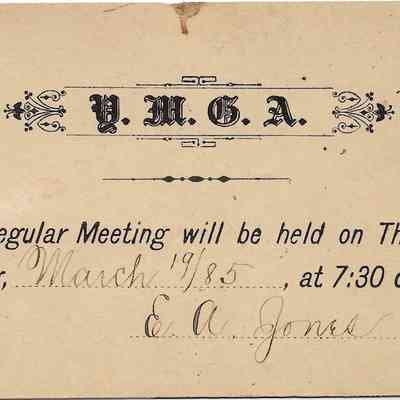 Y. M. G. A.
egular Meeting will be held on Th
r, March 19/85, at 7:30 o
E. A. Jones